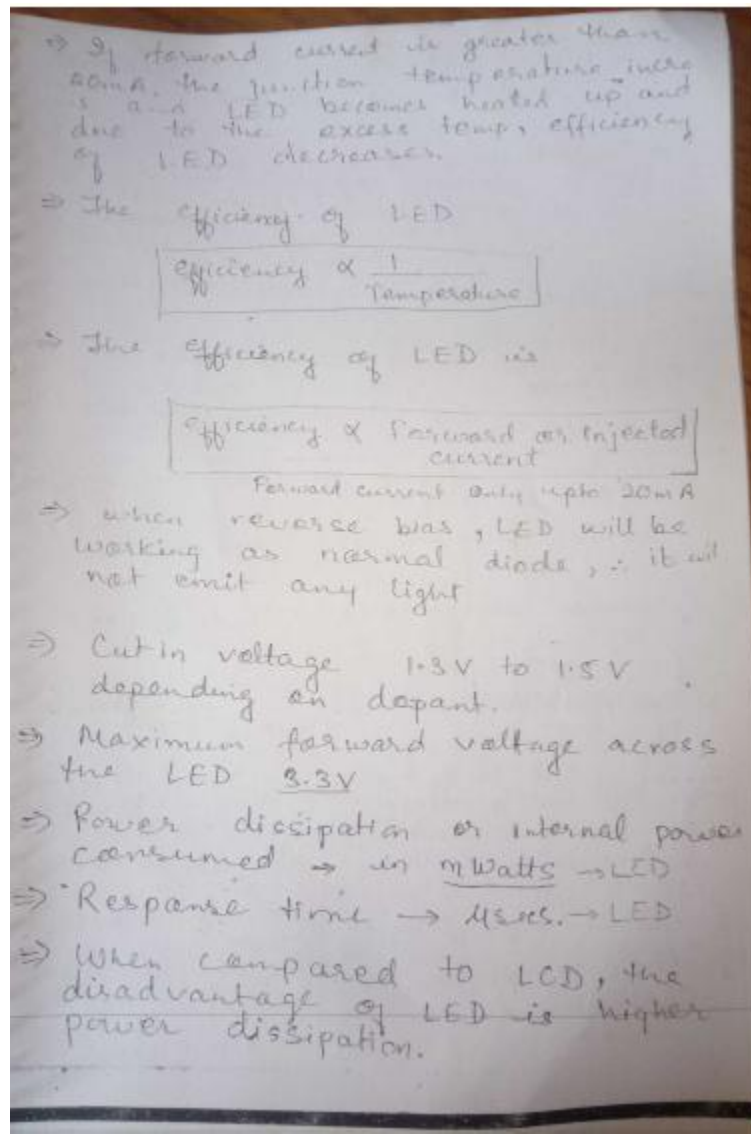 ⇒ If forward current is greater than
20mA, the junction temperature incre
s and LED becomes heated up and
due to the excess temp, efficiency
of LED decreases.
⇒ The efficiency of LED
efficiency ∝ 1
Temperature
⇒ The efficiency of LED is
efficiency ∝ forward or injected
current
Forward current only upto 20mA
⇒ when reverse bias, LED will be
working as normal diode, ∴ it will
not emit any light
⇒ Cut in voltage 1.3V to 1.5V
depending on dopant.
⇒ Maximum forward voltage across
the LED 3.3V
⇒ Power dissipation or internal power
consumed → in mWatts → LED
⇒ Response time → μsecs. → LED
⇒ When compared to LCD, the
disadvantage of LED is higher
power dissipation.